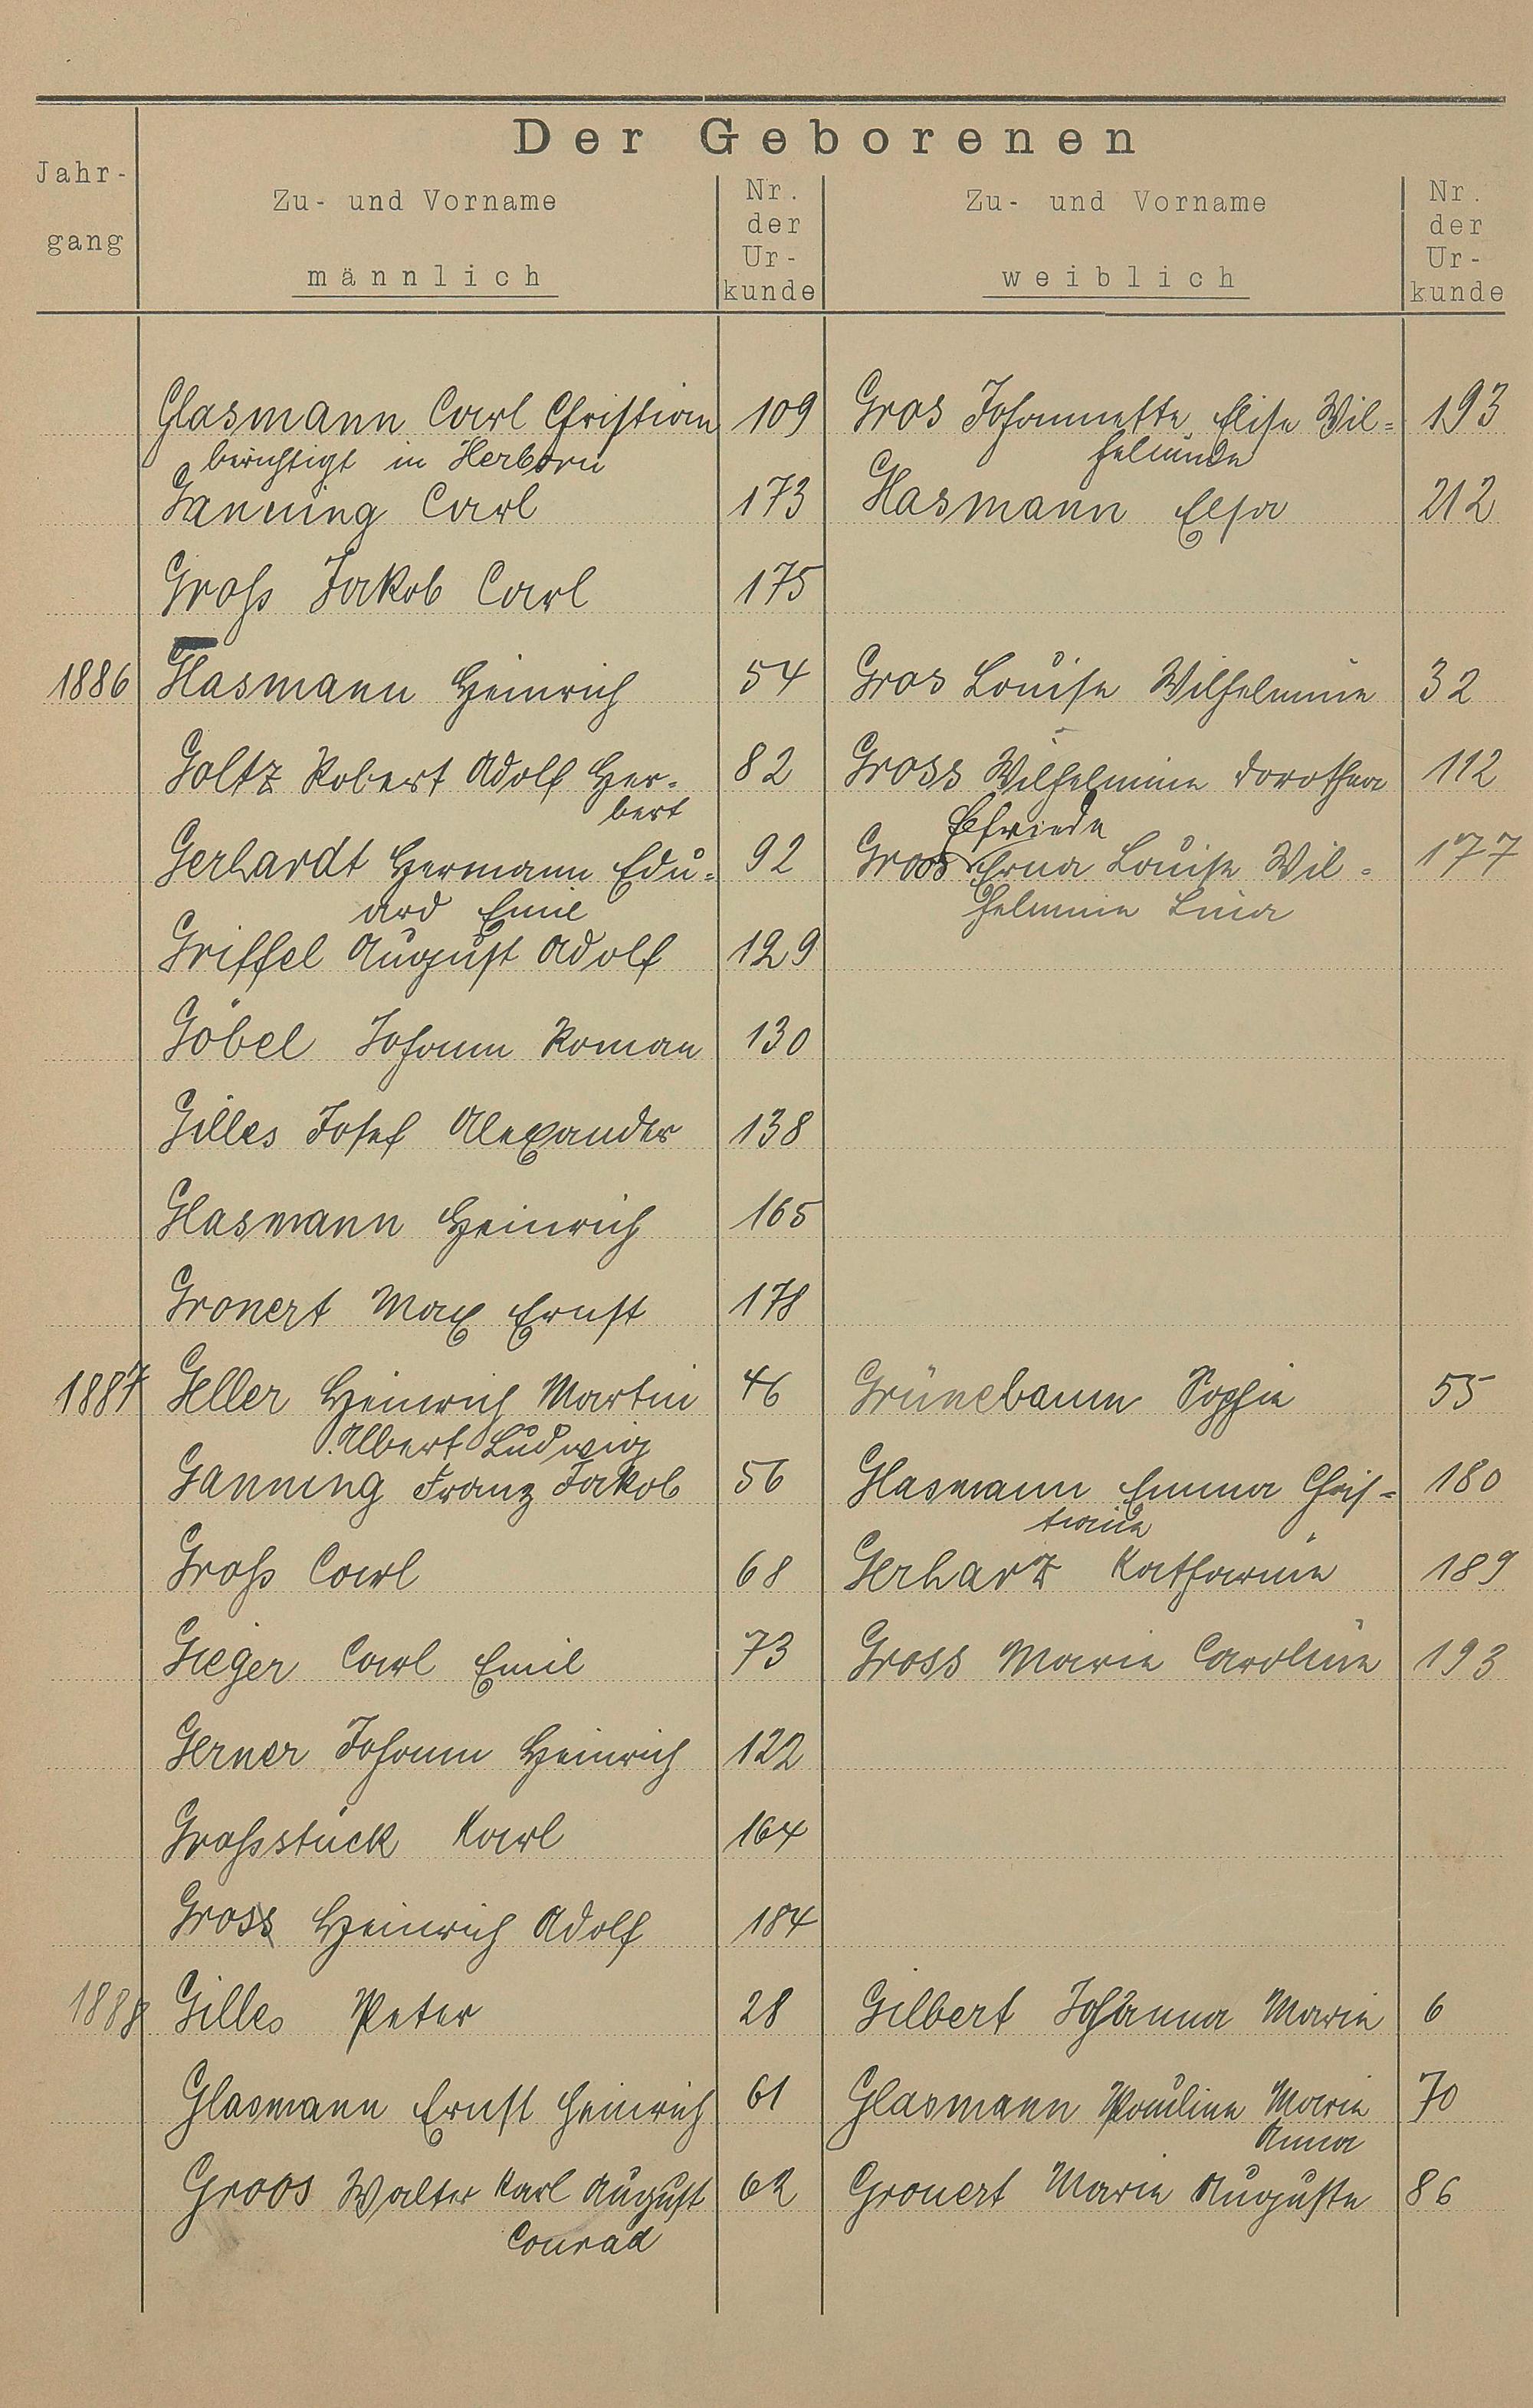 Der Geborenen
Jahr-
gang
Zu- und Vorname
männlich
Nr.
der
Ur-
kunde
Zu- und Vorname
weiblich
Nr.
der
Ur-
kunde
Glasmann Carl Christian 109 Gros Johannette Elise Wil=
193
berichtigt in Herborn
helmine
Ganning Carl 173 Glasmann Elsa 212
Groß Jakob Carl 175
1886 Glasmann Heinrich 54 Gros Louise Wilhelmine 32
Goltz Robert Adolf Her= 82 Gross Wilhelmine Dorothea 112
bert
Elfriede
Gerhardt Hermann Edu= 92 Groos Erna Louise Wil= 177
ard Emil
helmine Lina
Griffel August Adolf 129
Göbel Johann Roman 130
Gilles Josef Alexander 138
Glasmann Heinrich 165
Gronert Max Ernst 178
1887 Geller Heinrich Martin 46 Grünebaum Sophie 55
Albert Ludwig
Ganning Franz Jakob 56 Glasmann Emma Chris= 180
tiane
Groß Carl 68 Gerharz Katharine 189
Gieger Carl Emil 73 Gross Marie Caroline 193
Gerner Johann Heinrich 122
Großstück Karl 164
Gross Heinrich Adolf 184
1888 Gilles Peter 28 Gilbert Johanna Marie 6
Glasmann Ernst Heinrich 61 Glasmann Pauline Marie 70
Anna
Groos Walter Karl August 62 Gronert Marie Auguste 86
Conrad